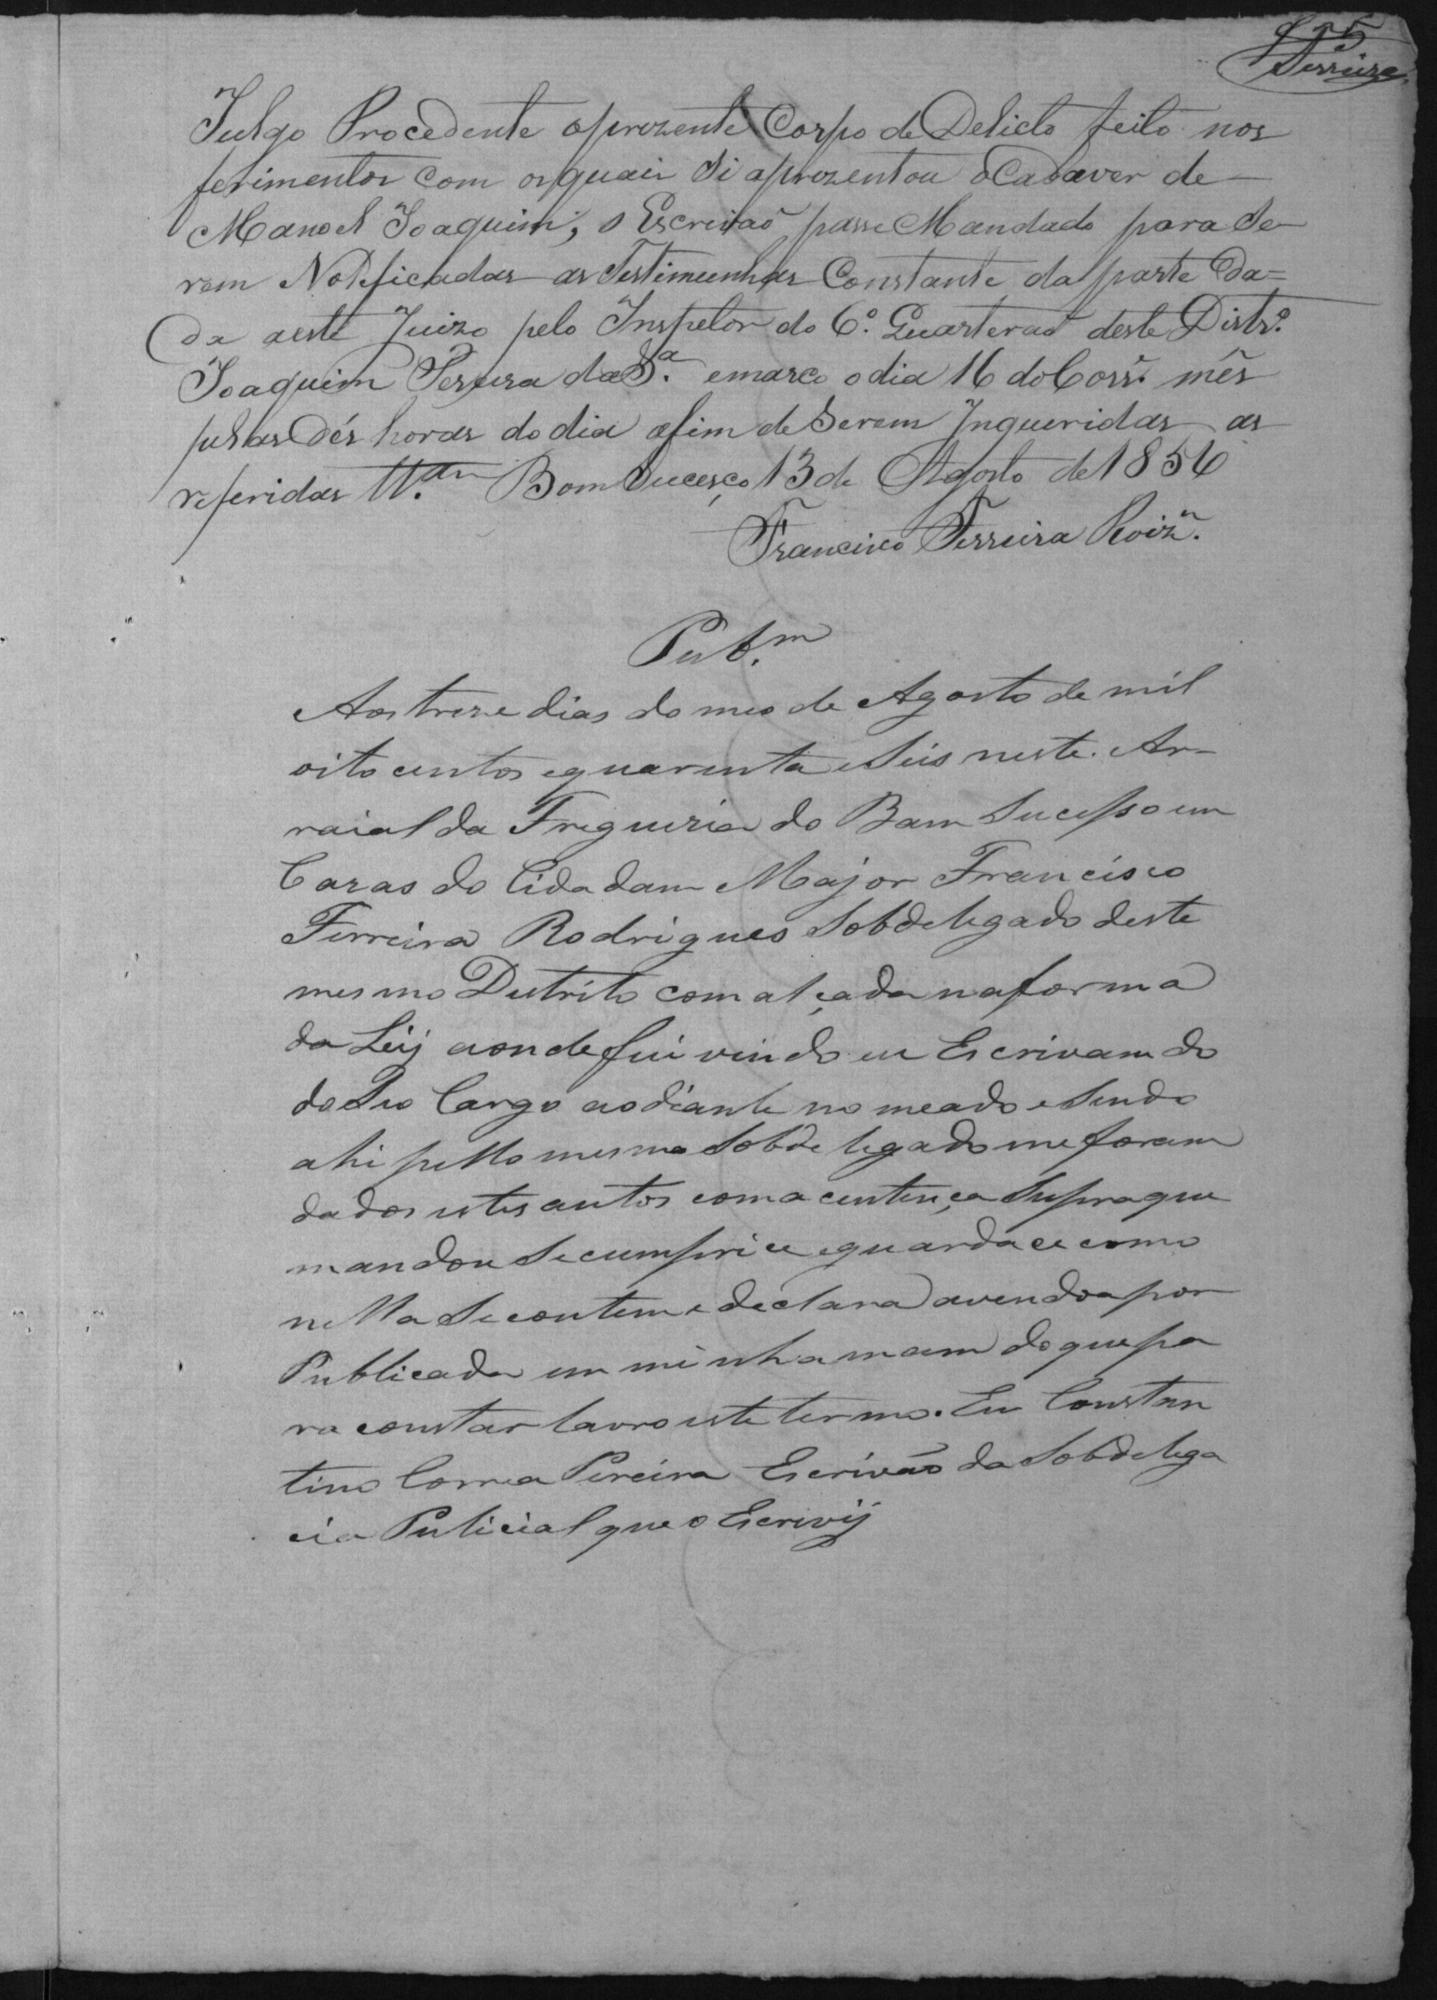 5
Ferreira
Julgo Procedente aprezente Corpo de Delicto feito nos
ferimentos com osquais Si aprezentou oCadaver de
Manoel Joaquim; o Escrivaõ passe Mandado para Se-
rem Notificadas as Testimunhas Constante da parte Da=
da aeste Juizo pelo Inspetor do 6º. Quarteraõ deste Distrº.
Joaquim Pereira daSª. emarco odia 16 doCorrᵉ. mês
pelas Dés horas do dia afim de Serem Inqueridas as
referidas ttᵃˢ Bom Suceço 13 de Agosto de 1856
Francisco Ferreira Roizˢ.
Pubᵐ.
Aos treze dias do mes de Agosto de mil
oito centos equarenta e Seis neste Ar-
raial da Freguezia do Bam Sucesso em
Cazas do Cidadam Major Francisco
Ferreira Rodrigues Sobdelegado deste
mesmo Destrito com alçada naforma
da Leij aonde fui vindo eu Escrivam do
do Seo Cargo aodiante nomeado e Sendo
ahi pello mesmo Sobdelegado me foram
dados estes autos coma centença Supra que
mandou Secumprice eguardace como
nella Secontem e declara avendoa por
Publicada em minha mam do que pa
ra constar lavro este termo. Eu Constan
tino Correa Pereira Escrivaõ da Sobdelega
cia Pulicial que o Escrivij